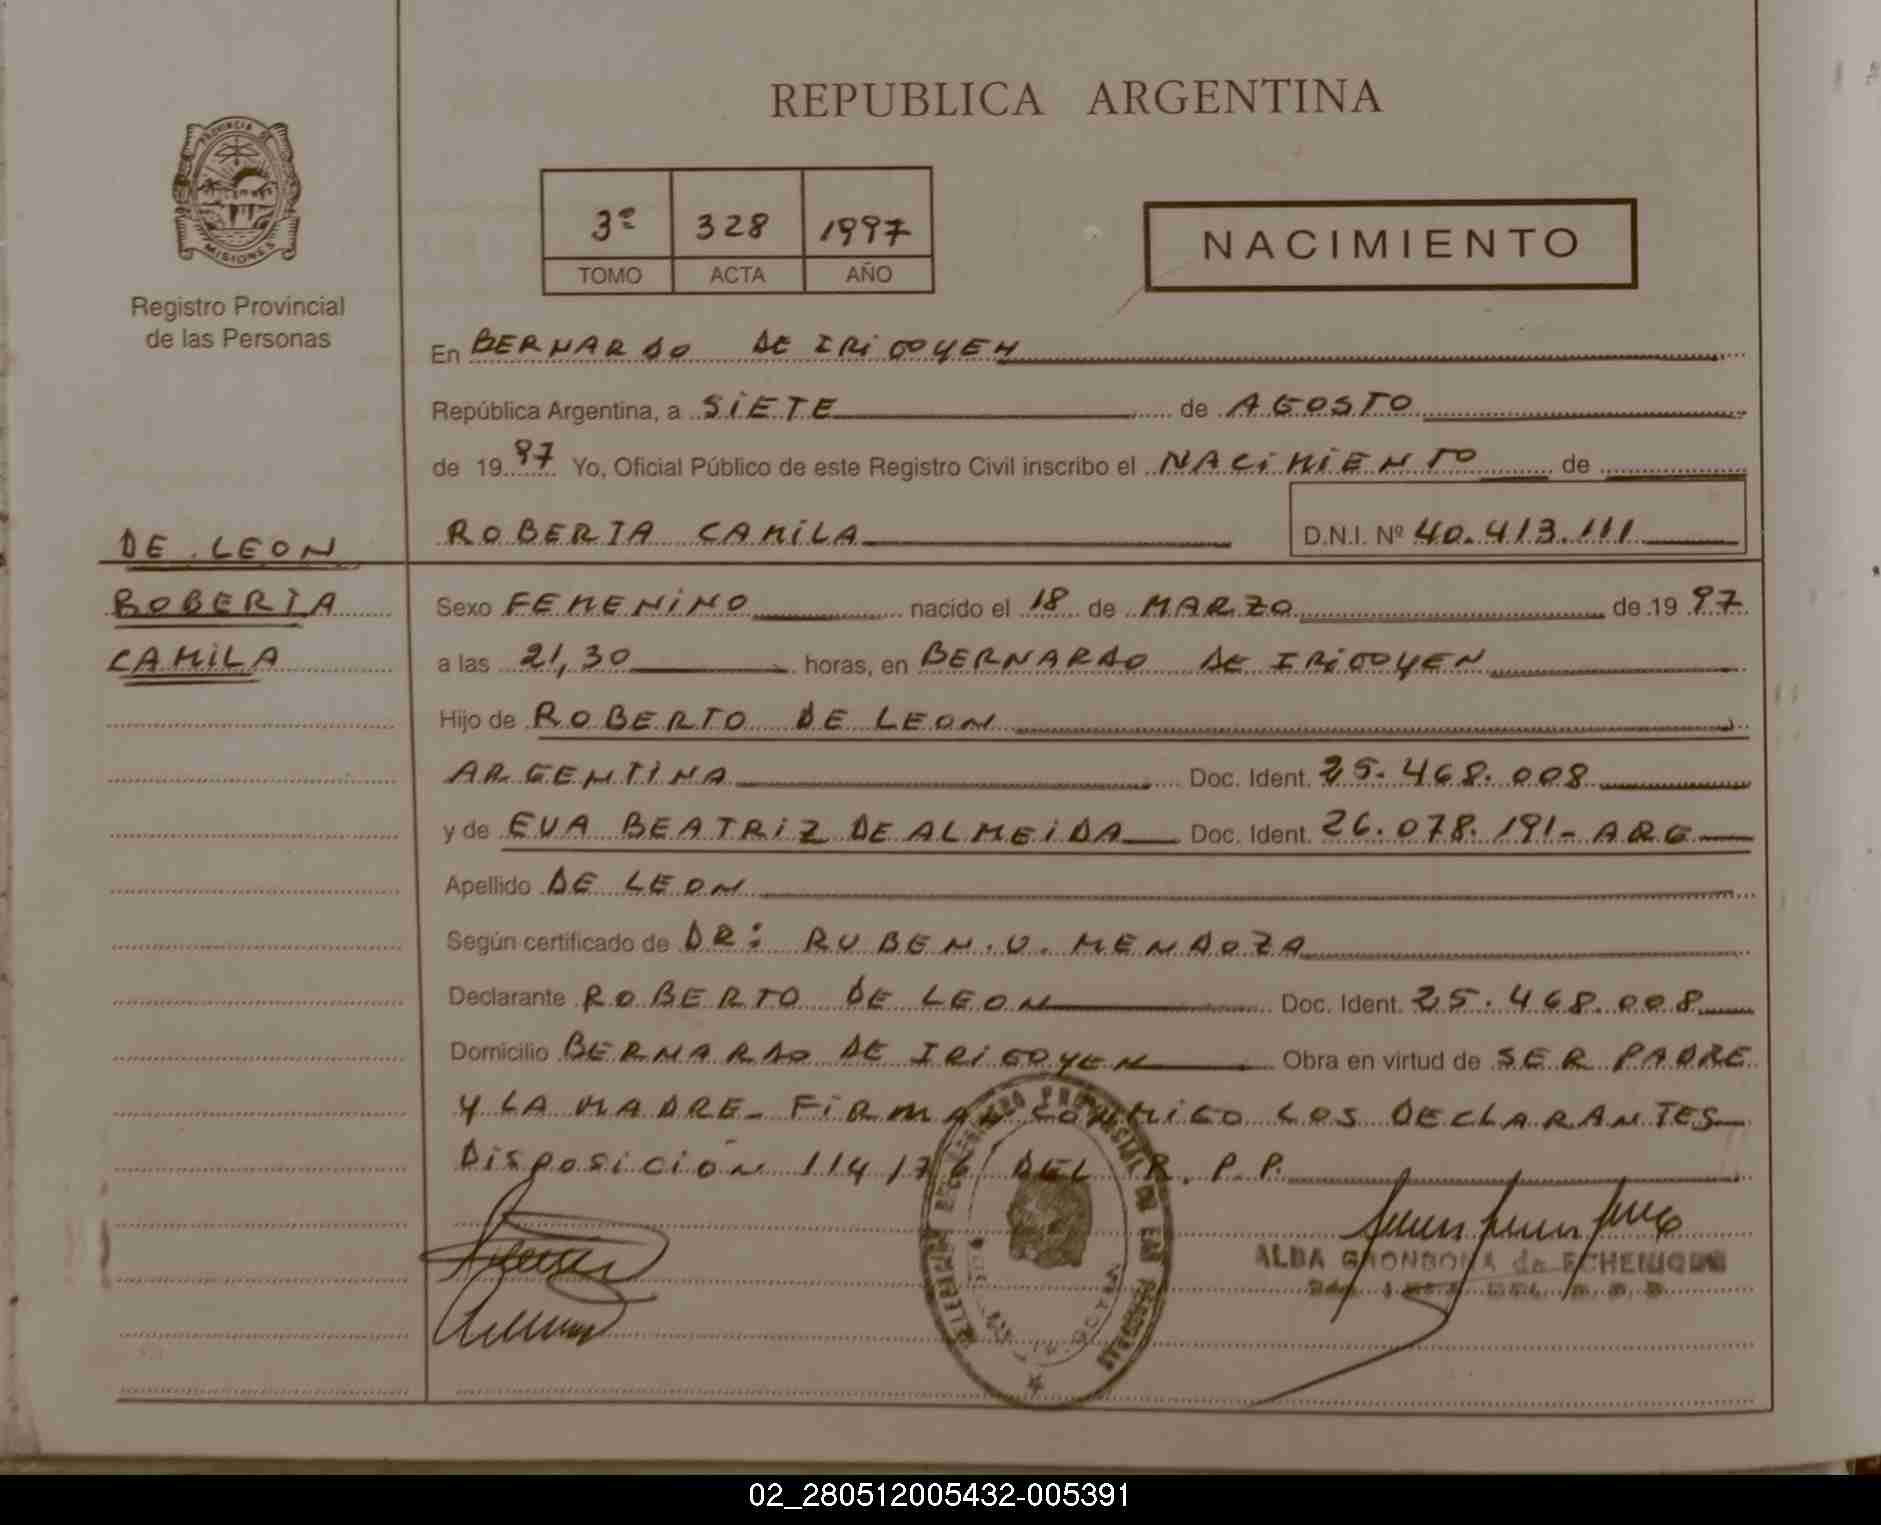 REPUBLICA ARGENTINA
PROVINCIA DE
MISIONES
Registro Provincial
de las Personas
3º 328 1997
TOMO ACTA AÑO
NACIMIENTO
En BERNARDO DE IRIGOYEN
República Argentina, a SIETE de AGOSTO
de 1997 Yo, Oficial Público de este Registro Civil inscribo el NACIMIENTO de
ROBERTA CAMILA D.N.I. Nº 40.413.111
DE LEON
ROBERTA
CAMILA
Sexo FEMENINO nacido el 18 de MARZO de 19 97
a las 21,30 horas, en BERNARDO DE IRIGOYEN
Hijo de ROBERTO DE LEON
ARGENTINA Doc. Ident. 25.468.008
y de EVA BEATRIZ DE ALMEIDA Doc. Ident. 26.078.191- ARG
Apellido DE LEON
Según certificado de DR: RUBEN.U. MENDOZA
Declarante ROBERTO DE LEON Doc. Ident. 25.468.008
Domicilio BERNARDO DE IRIGOYEN Obra en virtud de SER PADRE
Y LA MADRE- FIRMAN CONMIGO LOS DECLARANTES
DISPOSICIÓN 114/76 DEL R.P.P.
ALBA GRONDONA de ECHENIQUE
02_280512005432-005391